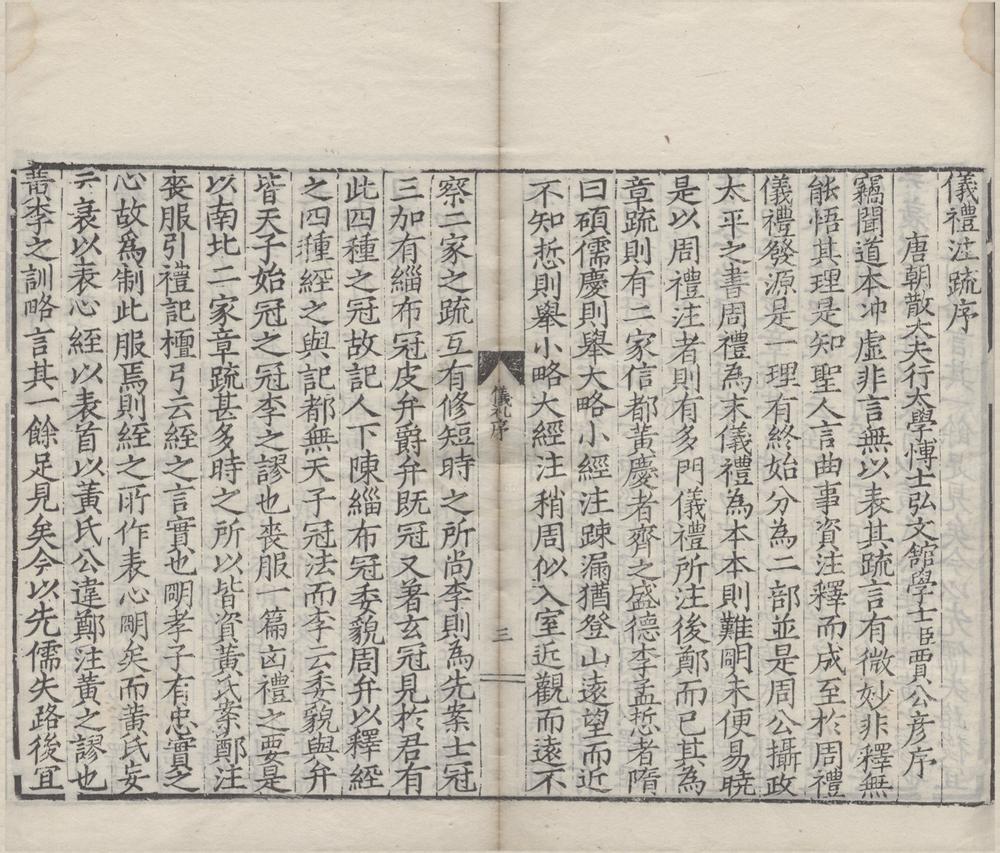 儀禮注疏序
唐朝散大夫行太學博士弘文館學士臣賈公彥序
竊聞道本冲虛非言無以表其疏言有微妙非釋無
能悟其理是知聖人言曲事資注釋而成至於周禮
儀禮發源是一理有終始分為二部並是周公攝政
太平之書周禮為末儀禮為本本則難明末便易曉
是以周禮注者則有多門儀禮所注後鄭而已其為
章疏則有二家信都黃慶者齊之盛德李孟悊者隋
曰碩儒慶則舉大略小經注踈漏猶登山遠望而近
不知悊則舉小略大經注稍周似入室近觀而遠不
儀礼序
三
察二家之疏互有修短時之所尚李則為先案士冠
三加有緇布冠皮弁爵弁既冠又著玄冠見於君有
此四種之冠故記人下陳緇布冠委貌周弁以釋經
之四種經之與記都無天子冠法而李云委貌與弁
皆天子始冠之冠李之謬也喪服一篇凶禮之要是
以南北二家章疏甚多時之所以皆資黃氏案鄭注
喪服引禮記檀弓云絰之言實也明孝子有忠實之
心故為制此服焉則絰之所作表心明矣而黃氏妄
云衰以表心絰以表首以黃氏公違鄭注黃之謬也
黃李之訓略言其一餘足見矣今以先儒失路後宜